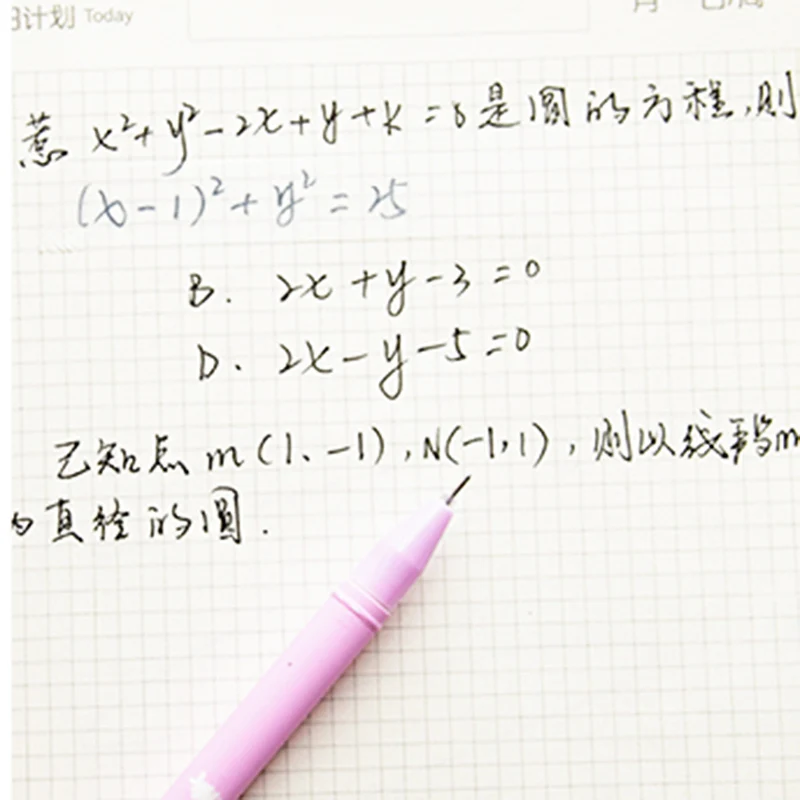 计划 Today
惹 x²+y²-2x+y+k=0是圆的方程,则
(x-1)²+y²=25
B. 2x+y-3=0
D. 2x-y-5=0
已知点m(1、-1),N(-1,1),则以线段m
为直径的圆.